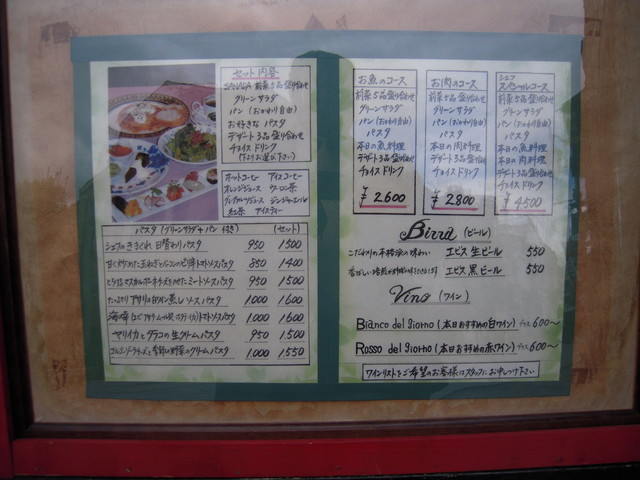 セット内容
前菜5品盛り合わせ
グリーンサラダ
パン(おかわり自由)
お好きな パスタ
デザート3品盛り合わせ
チョイスドリンク
(下よりお選び下さい)
ホットコーヒー アイスコーヒー
オレンジジュース ウーロン茶
グレープフルーツジュース ジンジャーエール
紅茶 アイスティー
パスタ(グリーンサラダ+パン付き) (セット)
シェフのきまぐれ 日替わりパスタ 950 1500
甘く炒めた玉ねぎとベーコンのピリ辛トマトソースパスタ 850 1400
ミートソースパスタ 950 1500
たっぷりアサリの白ワイン蒸しソースパスタ 1000 1600
海の幸 トマトソースパスタ 1000 1600
ヤリイカとタラコの生クリームパスタ 950 1500
ゴルゴンゾーラチーズと季節の野菜のクリームパスタ 1000 1550
お魚のコース
前菜5品盛り合わせ
グリーンサラダ
パン(おかわり自由)
パスタ
本日の魚料理
デザート3品盛り合わせ
チョイスドリンク
¥2600
お肉のコース
前菜5品盛り合わせ
グリーンサラダ
パン(おかわり自由)
パスタ
本日の肉料理
デザート3品盛り合わせ
チョイスドリンク
¥2800
シェフ
スペシャルコース
前菜5品盛り合わせ
グリーンサラダ
パン(おかわり自由)
パスタ
本日の魚料理
本日の肉料理
デザート3品盛り合わせ
チョイスドリンク
¥4500
Birra (ビール)
こだわりの本格派の味わい エビス生ビール 550
エビス黒ビール 550
Vino (ワイン)
Bianco del giorno (本日おすすめの白ワイン) グラス 600〜
Rosso del giorno (本日おすすめの赤ワイン) グラス 600〜
ワインリストをご希望のお客様はスタッフにお申しつけ下さい